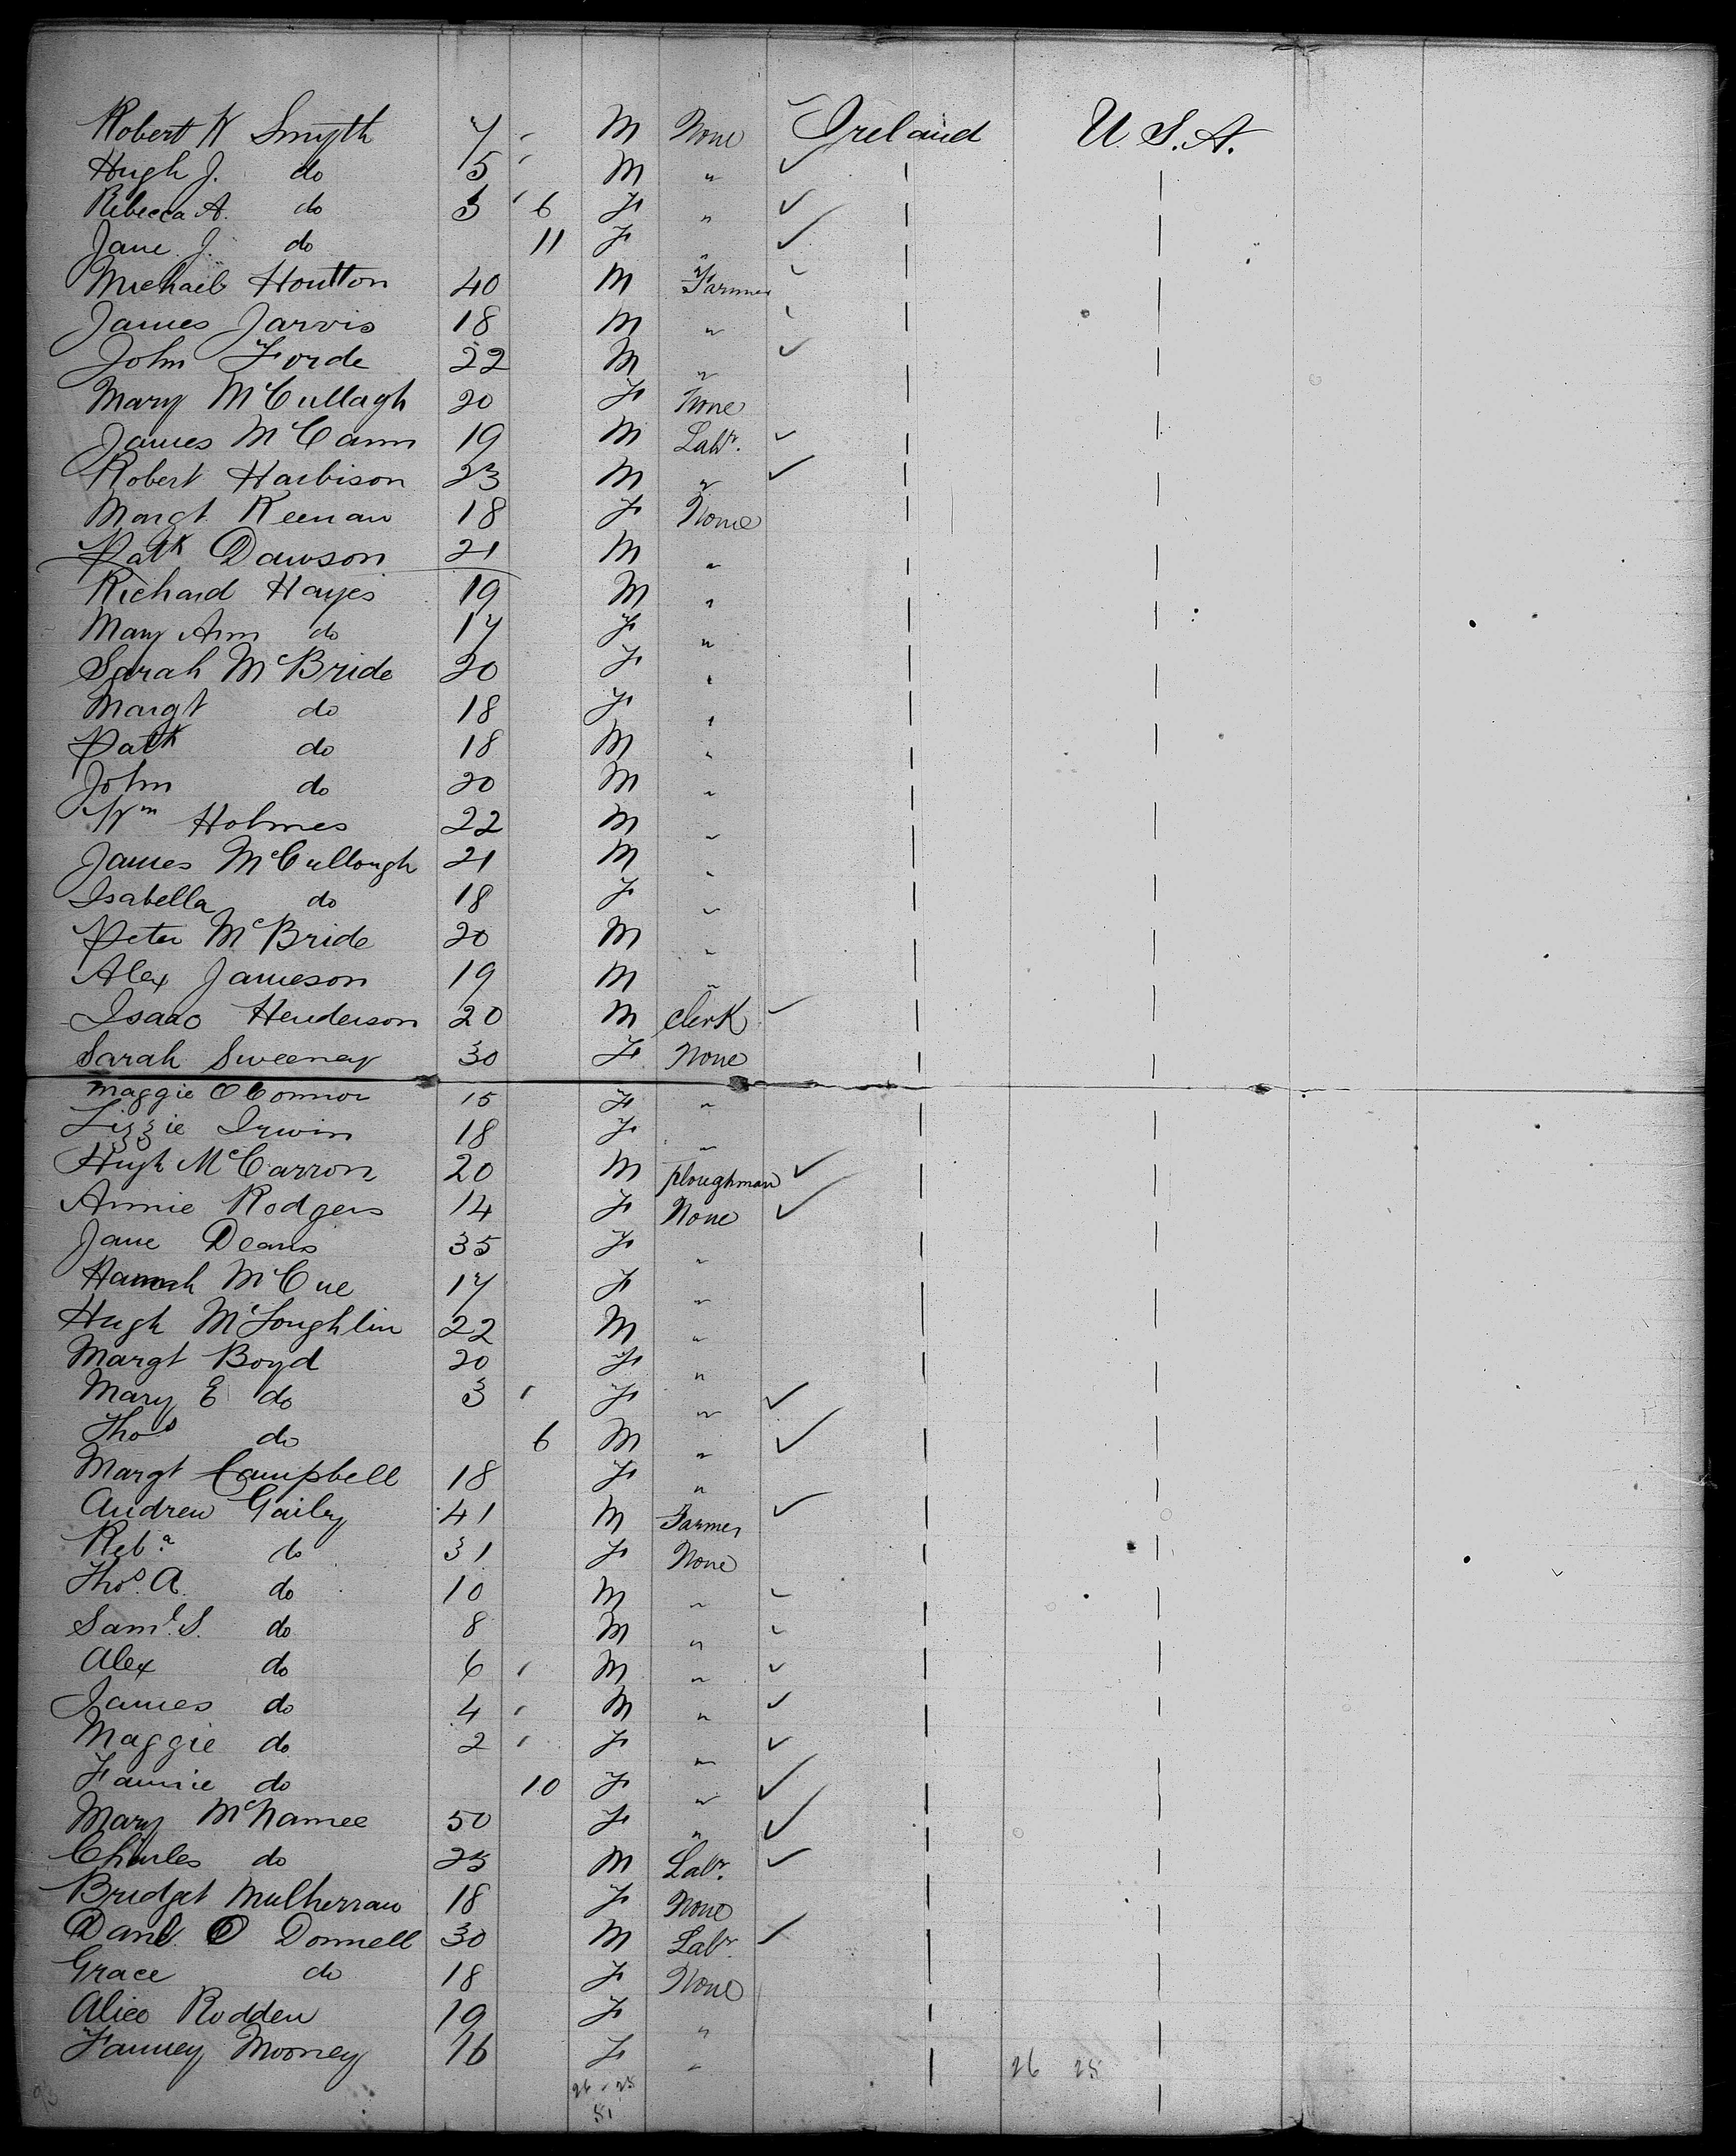 Robert W Smyth 7 M None Ireland U.S.A.
Hugh J. do 5 M "
Rebecca A. do 3 6 F "
Jane J. do 11 F "
Michael Houtton 40 M Farmer
James Jarvis 18 M "
John Forde 22 M "
Mary McCullagh 20 F None
James McCann 19 M Labr.
Robert Harbison 23 M "
Margt Keenan 18 F None
Patk Dawson 21 M "
Richard Hayes 19 M "
Mary Ann do 17 F "
Sarah McBride 20 F "
Margt do 18 F "
Patk do 18 M "
John do 20 M "
Wm Holmes 22 M "
James McCullough 21 M "
Isabella do 18 F "
Peter McBride 20 M "
Alex Jameson 19 M "
Isaac Henderson 20 M Clerk
Sarah Sweeney 30 F None
Maggie OConnor 15 F "
Lizzie Irwin 18 F "
Hugh McCarron 20 M ploughman
Annie Rodgers 14 F None
Jane Deans 35 F "
Hannah McCue 17 F "
Hugh McLoughlin 22 M "
Margt Boyd 20 F "
Mary E do 3 F "
Thos do 6 M "
Margt Campbell 18 F "
Andrew Gailey 41 M Farmer
Reba do 31 F None
Thos. A. do 10 M "
Saml. S. do 8 M "
Alex do 6 M "
James do 4 M "
Maggie do 2 F "
Fannie do 10 F "
Mary McNamee 50 F "
Charles do 25 M Labr.
Bridget Mulherran 18 F None
Danl. O Donnell 30 M Labr.
Grace do 18 F None
Alice Rodden 19 F "
Fanney Mooney 16 F "
26 25
26 25
51